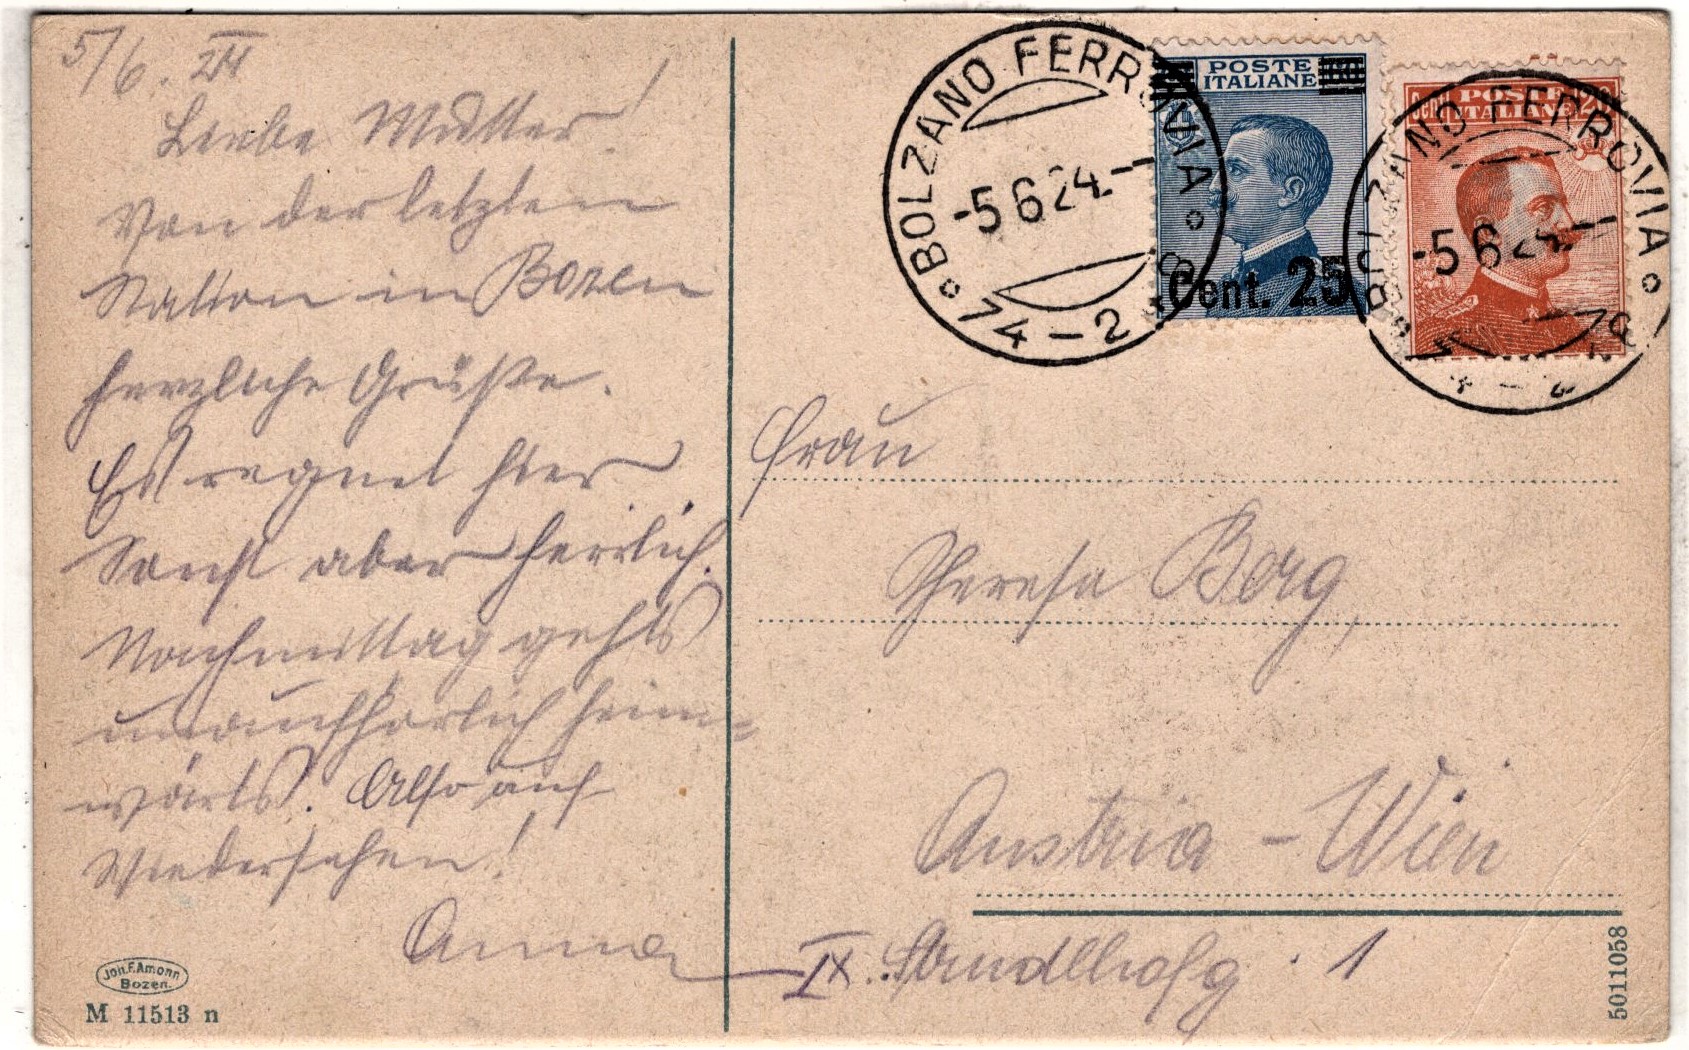 5/6. 24
Liebe Mutter!
Von der letzten
Station in Bozen
herzliche Grüße.
Es regnet hier
Sonst aber herrlich.
Nachmittag gehts
unaufhörlich heim=
wärts. Also auf
Wiedersehen!
Anna
Joh.F.Amonn
Bozen.
M 11513 n
BOLZANO FERROVIA
-5 6 24.-
74-2
POSTE
ITALIANE
60
Cent. 25
Cent POSTE 20
ITALIANE
BOLZANO FERROVIA
-5 6 24.-
Frau
Theresa Berg,
Austria - Wien
IX. Strudlhofg. 1
5011058